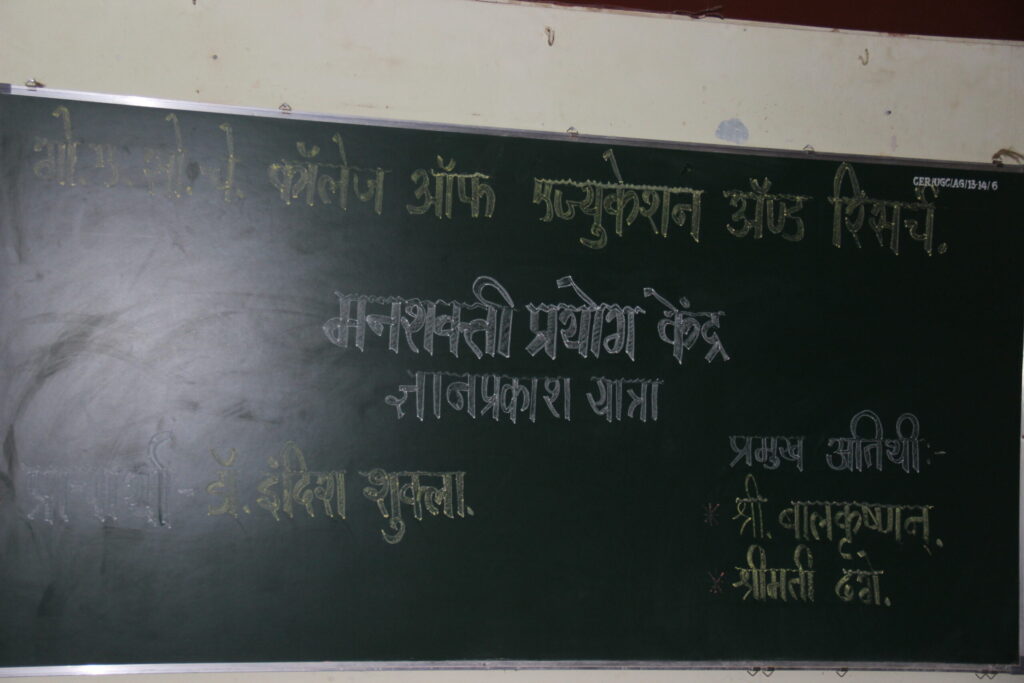 कॉलेज ऑफ एज्युकेशन ॲण्ड रिसर्च.
CER/UGC/AG/13-14/6
मनशक्ती प्रयोग केंद्र
ज्ञानप्रकाश यात्रा
प्रमुख अतिथी :-
- डॉ. इंदिरा शुक्ला.
* श्री. बालकृष्णन्.
* श्रीमती